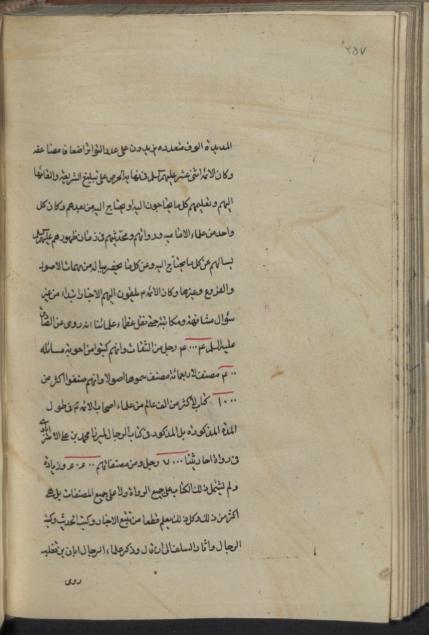 ٢٥٧
المديدة الوف متعدده يزيدون على عدد التواتر اضعافا مضاعفه
وكان الائمه اثنى عشر عليهم السلم فى نهاية الحرص على تبليغ الشريعة والقائها
اليهم وتعليمهم كل ما يحتاجون اليه او يحتاج اليه من بعدهم وكان كل
واحد من علماء الاماميه ورواتهم ومحدثيهم فى زمان ظهورهم عليهم السلم
يسالهم عن كل ما يحتاج اليه وعن كل ما يخطر بباله من مهمات الاصول
والفروع وغيرها وكان الائمه م يلقون اليهم الاخبار ابتداء من غير
سؤال مشافهة ومكاتبة حتى نقل عظماء علمائنا انه روى عن الصادق
عليه السلم ٤٠٠٠ رجل من الثقات وانهم كتبوا من اجوبة مسائله
٤٠٠ مصنف لاربعمائة مصنف سموها اصولا وانهم صنفوا اكثر من
١٠٠٠ كتاب لاكثر من الف عالم من علماء اصحاب الائمه م فى طول
المدة المذكوره بل المذكور فى كتاب الرجال لميرزا محمد بن على الاسترابادى
فى رواة احاديثنا ٧٠٠٠ رجل ومن مصنفاتهم ٤٠٤٠٠ وزيادة
ولم يشتمل ذلك الكتاب على جميع الرواة ولا على جميع المصنفات بل هى
اكثر من ذلك وكل ذلك يعلم قطعا من تتبع الاخبار وكتب الحديث وكتب
الرجال واثار السلف الى ان قال وذكر علماء الرجال ابان بن تغلب
روى